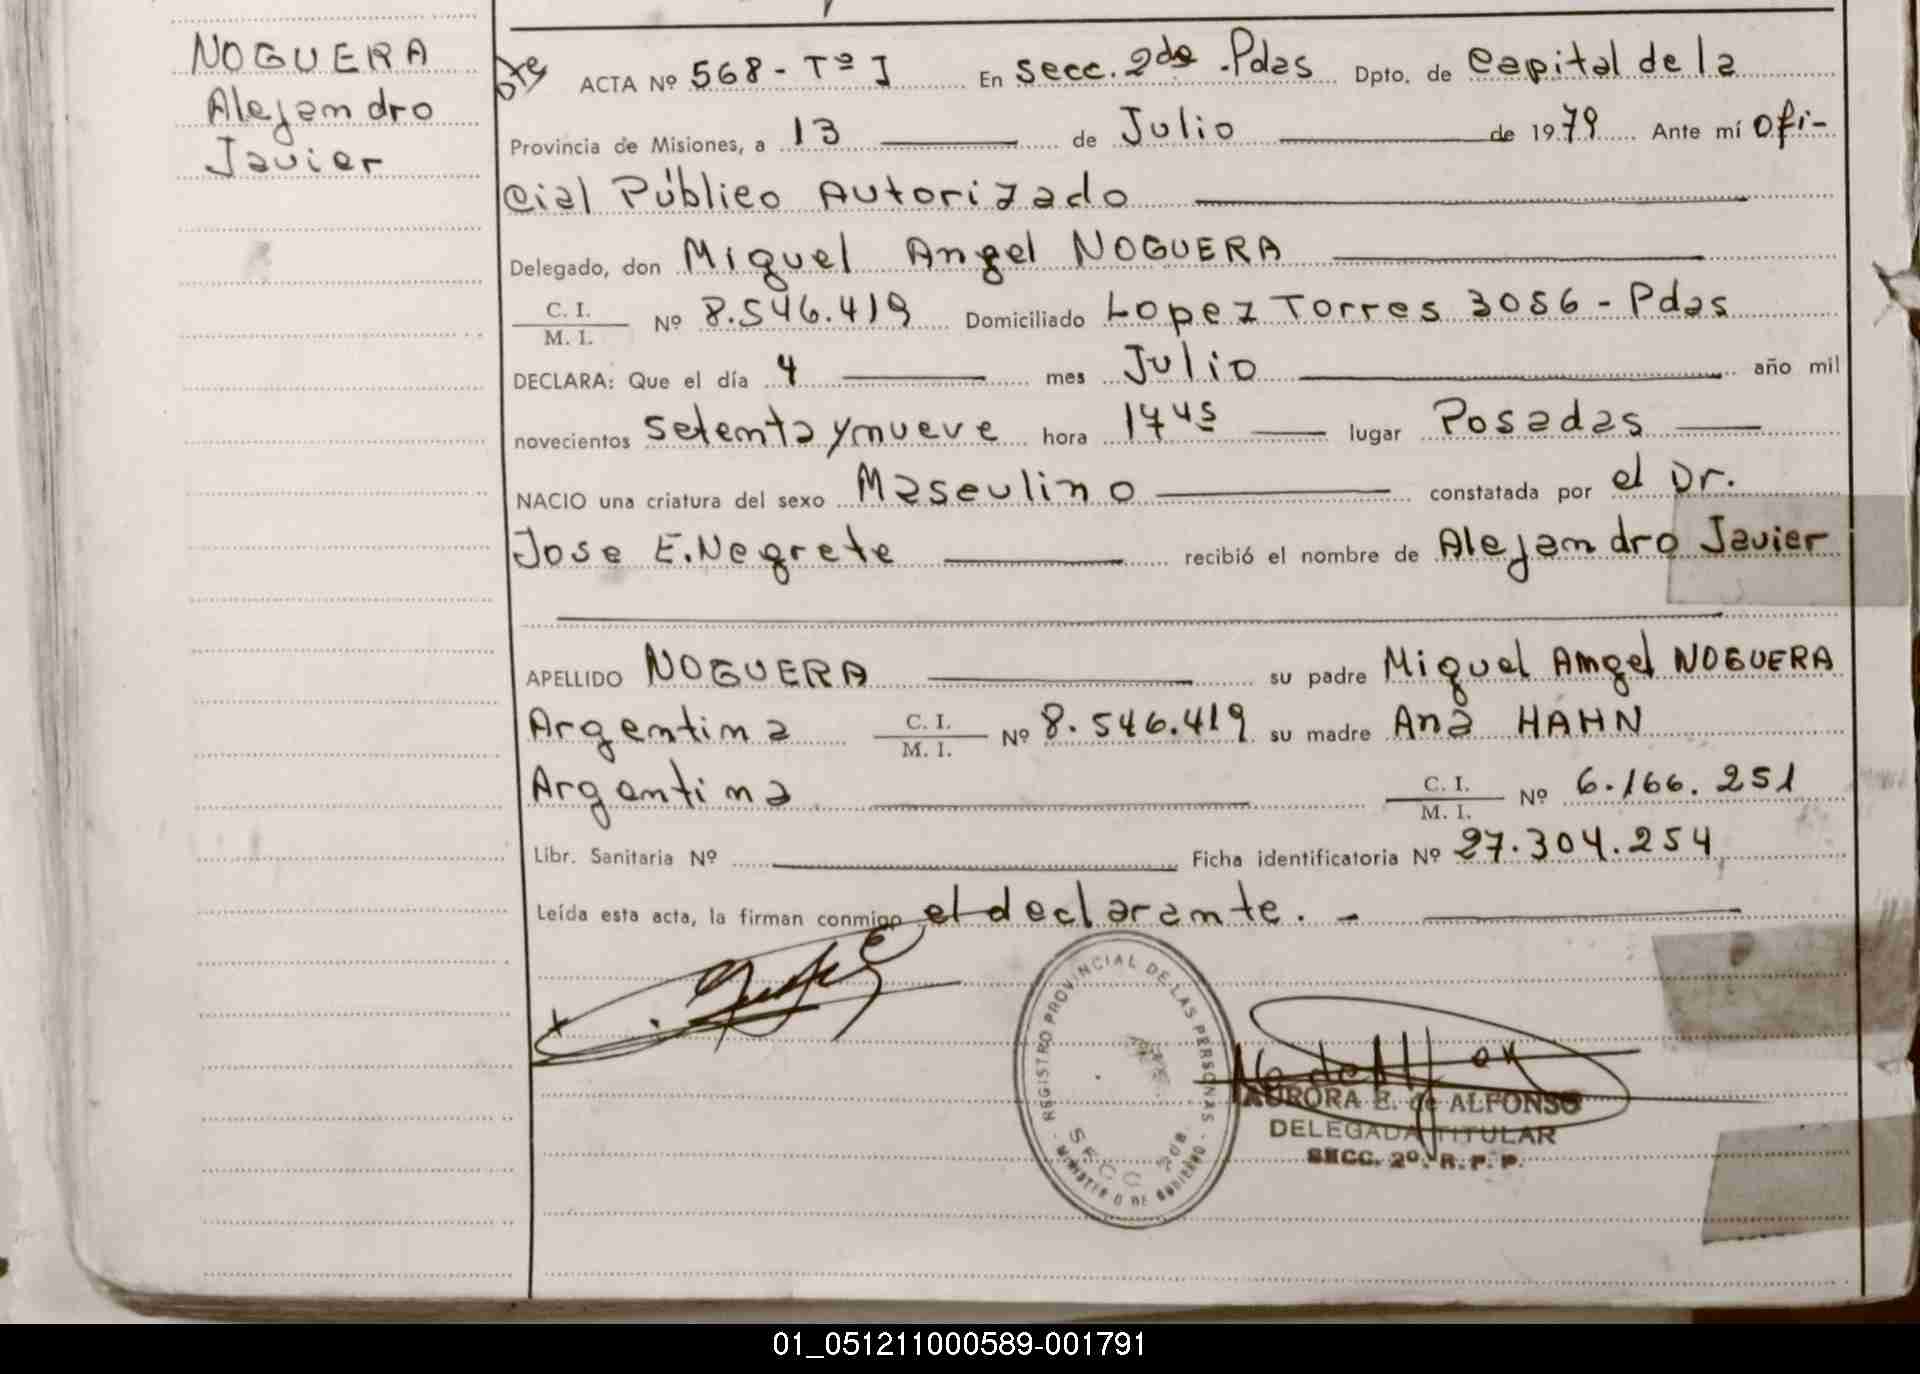 NOGUERA
Alejandro
Javier
ACTA Nº 568 - Tº I En Secc. 2da - Pdas Dpto. de Capital de la
Provincia de Misiones, a 13 de Julio de 1979 Ante mí Ofi-
cial Público Autorizado
Delegado, don Miguel Angel NOGUERA
C. I.
M. I. Nº 8.546.419 Domiciliado Lopez Torres 3056 - Pdas
DECLARA: Que el día 4 mes Julio año mil
novecientos setenta y nueve hora 17 45 lugar Posadas
NACIO una criatura del sexo Masculino constatada por el Dr.
Jose E. Negrete recibió el nombre de Alejandro Javier
APELLIDO NOGUERA su padre Miguel Angel NOGUERA
Argentina C. I. M. I. Nº 8.546.419 su madre Ana HAHN
Argentina C. I. M. I. Nº 6.166.251
Libr. Sanitaria Nº Ficha identificatoria Nº 27.304.254
Leída esta acta, la firman conmigo el declarante. -
REGISTRO PROVINCIAL DE LAS PERSONAS
MINISTERIO DE GOBIERNO
SECC
AURORA E. de ALFONSO
DELEGADA TITULAR
SECC. 2º. R. P. P.
01_051211000589-001791